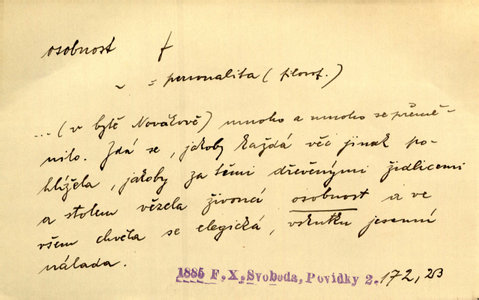 osobnost f
~ = personalita (filosof.)
... (v bytě Novákově) mnoho a mnoho se přemě-
nilo. Zdá se, jakoby každá věc jinak po-
hlížela, jakoby za těmi dřevěnými židlicemi
a stolem vězela životná osobnost a ve
všem chvěla se elegická, vskutku jesenní
nálada.
1885 F.X.Svoboda, Povídky 2. 172, 23